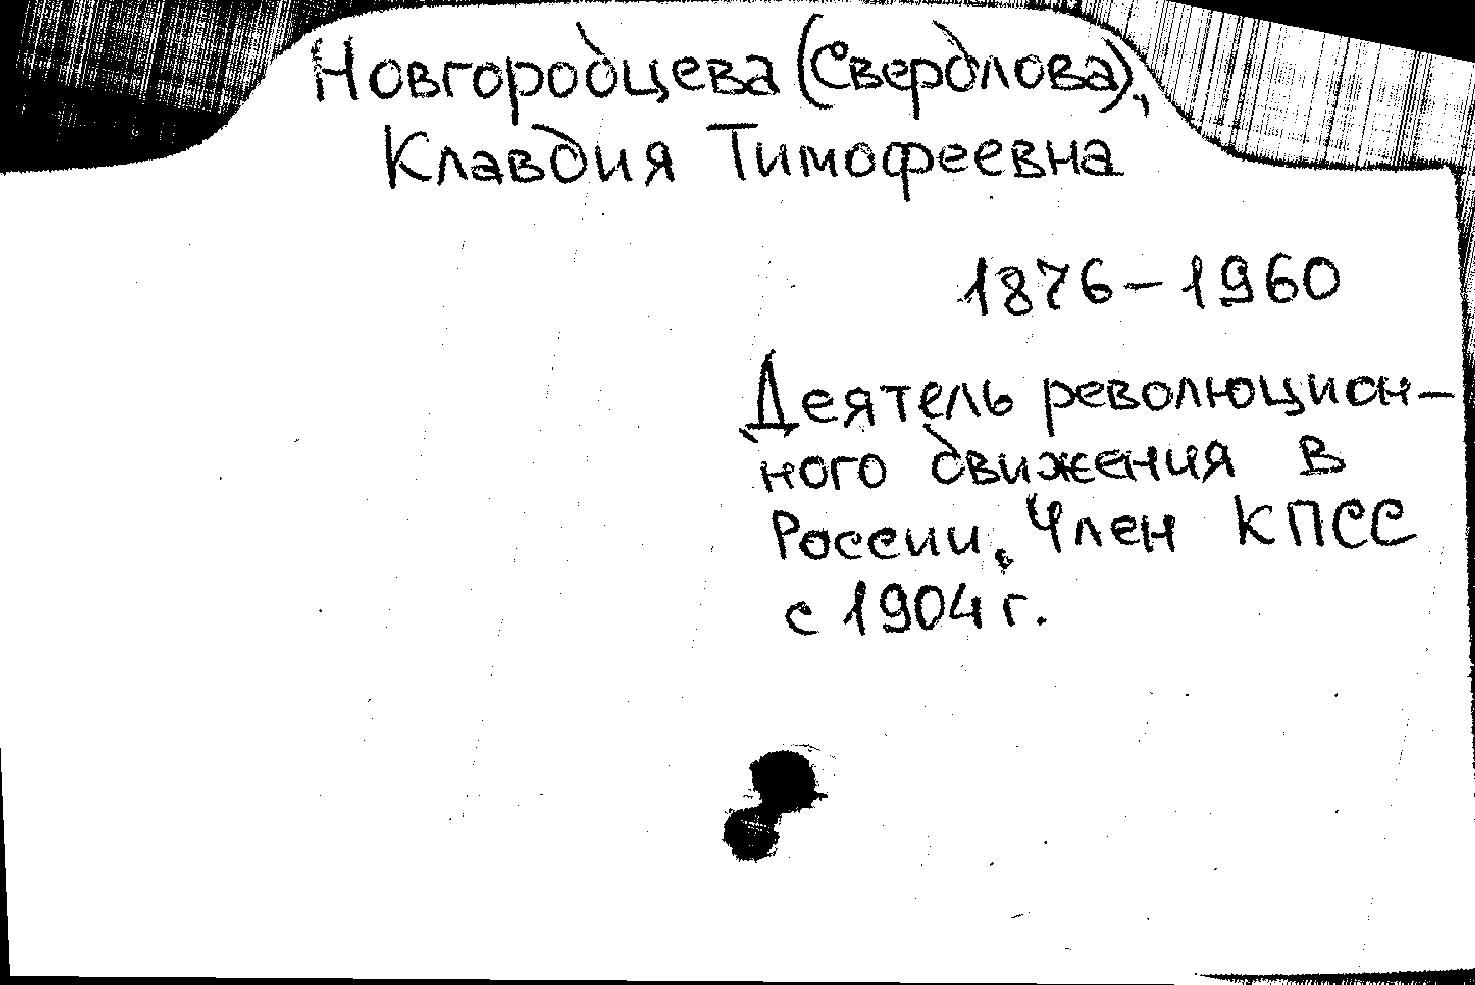 Новгородцева (Свердлова),
Клавдия Тимофеевна
1876-1960
Деятель революцион-
ного движения в
России. Член КПСС
с 1904 г.